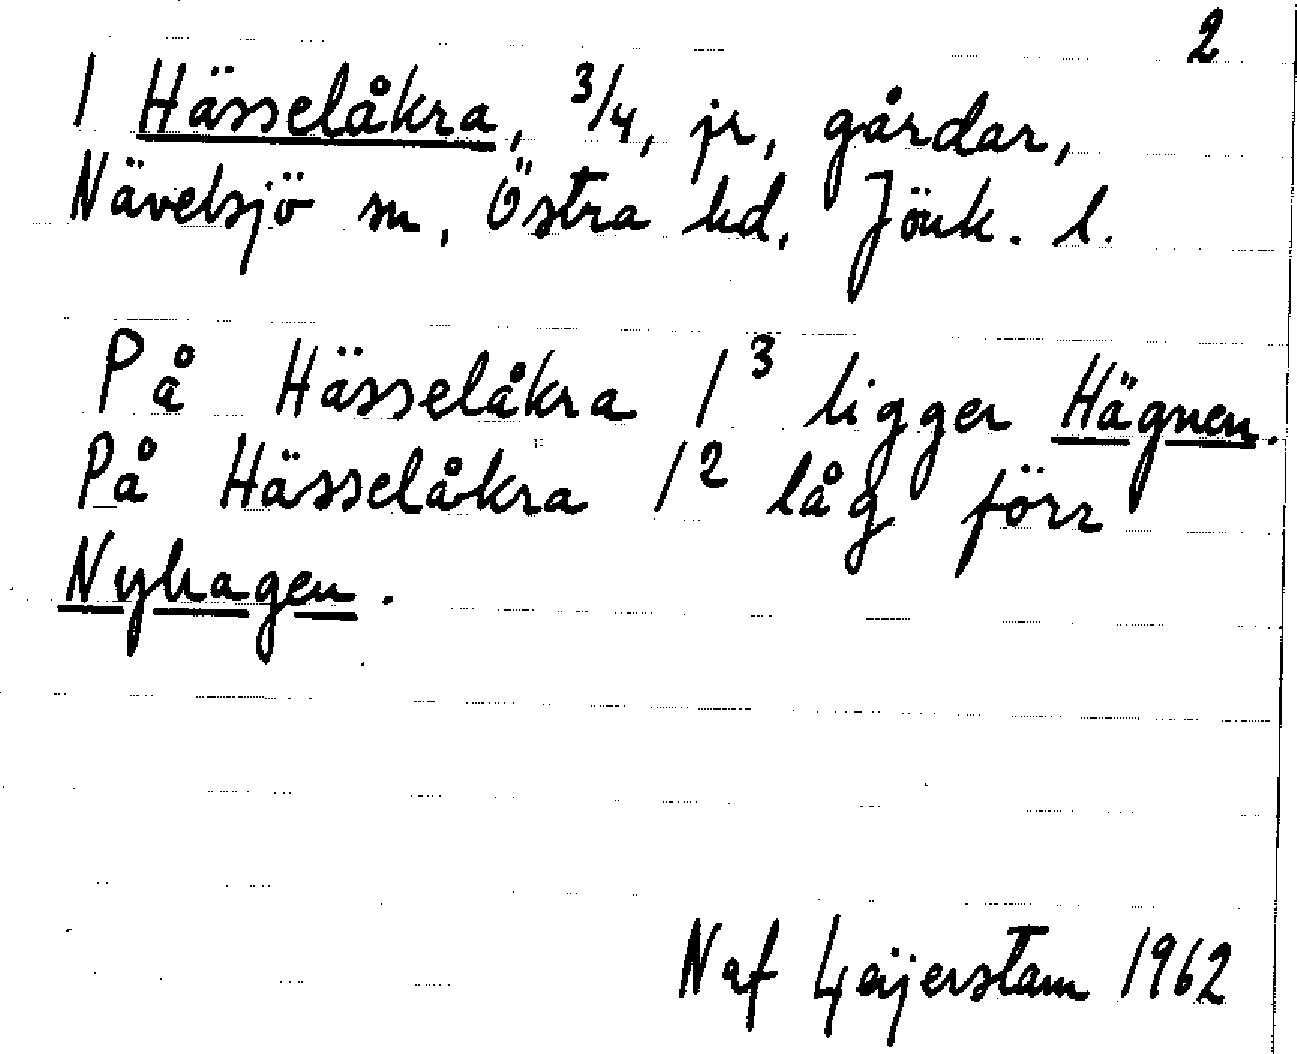 2
1 Hässelåkra, 3/4, jr, gårdar,
Nävelsjö sn, Östra hd, Jönk. l.
På Hässelåkra 1³ ligger Hägnen.
På Hässelåkra 1² låg förr
Nyhagen.
Naf Geijerstam 1962